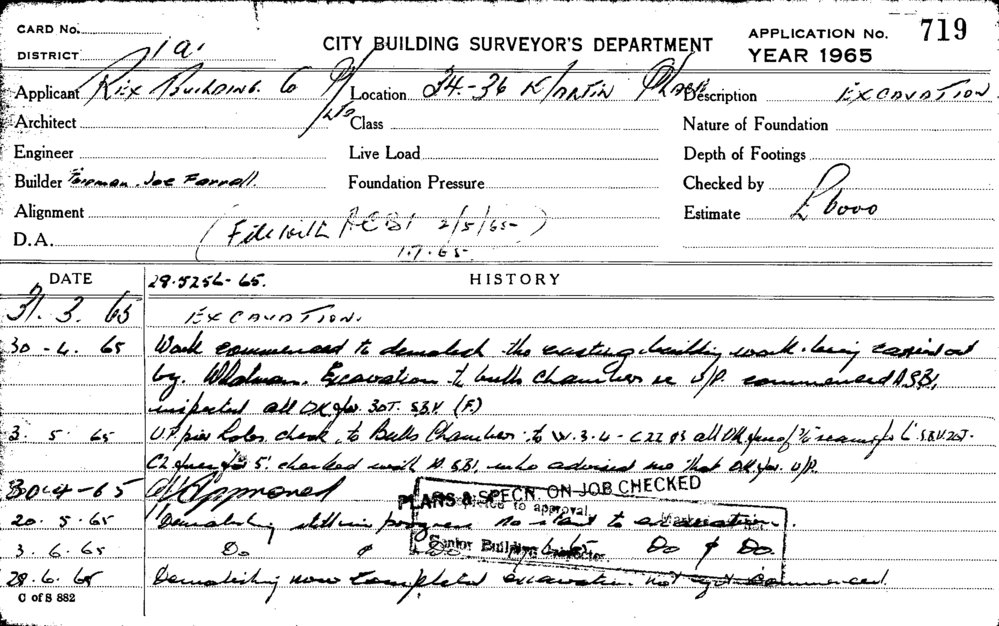 CARD No.
DISTRICT 1a.
CITY BUILDING SURVEYOR'S DEPARTMENT
APPLICATION No. 719
YEAR 1965
Applicant Rex Building Co P/Ltd
Location 34-36 Martin Place
Description EXCAVATION
Architect
Class
Nature of Foundation
Engineer
Live Load
Depth of Footings
Builder Foreman Joe Farrell.
Foundation Pressure
Checked by
Alignment
Estimate £6000
D.A.
(File with ACBI 2/5/65)
1.7.65
DATE
29.5256-65.
HISTORY
31.3.65 EXCAVATION.
30-4.65 Work commenced to demolish the existing building work being carried out
by Whatman. Excavation to bulls chambers commenced
inspected all OK for 30T.
3.5.65 pier holes check to Bulls Chambers to W.3.4-C22 all OK
5' checked with who advised me that OK for U/P.
30-4-65 Approved
PLANS & SPECN. ON JOB CHECKED
to approval
20.5.65 Demolishing still in progress no start to excavation.
Senior Building
3.6.65 Do & Do Do & Do.
28.6.65 Demolishing now completed excavation not yet commenced.
C of S 882